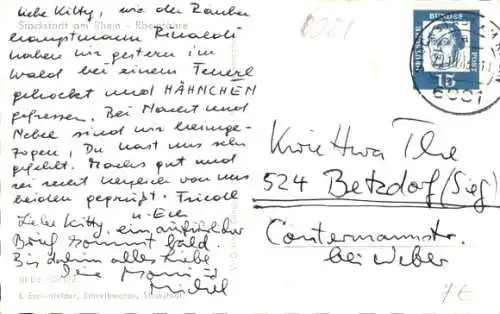 liebe Kitty, wie der Räuber
Stockstadt am Rhein - Rheinfähre
hauptmann Rinaldi
haben wir gestern im
Wald bei einem Feuerl
gehockt und HÄHNCHEN
gefressen. Bei Nacht und
Nebel sind wir heimge-
zogen, Du hast uns sehr
gefehlt. Machs gut und
sei recht herzlich von uns
beiden gegrüßt.
Liebe Kitty, ein ausführlicher
Brief kommt bald.
Bis dahin alles Liebe
Deine
DEUTSCHE BUNDESPOST
15
6081
6081
524 Betzdorf (Sieg)
Contermannstr.
bei Weber
7€